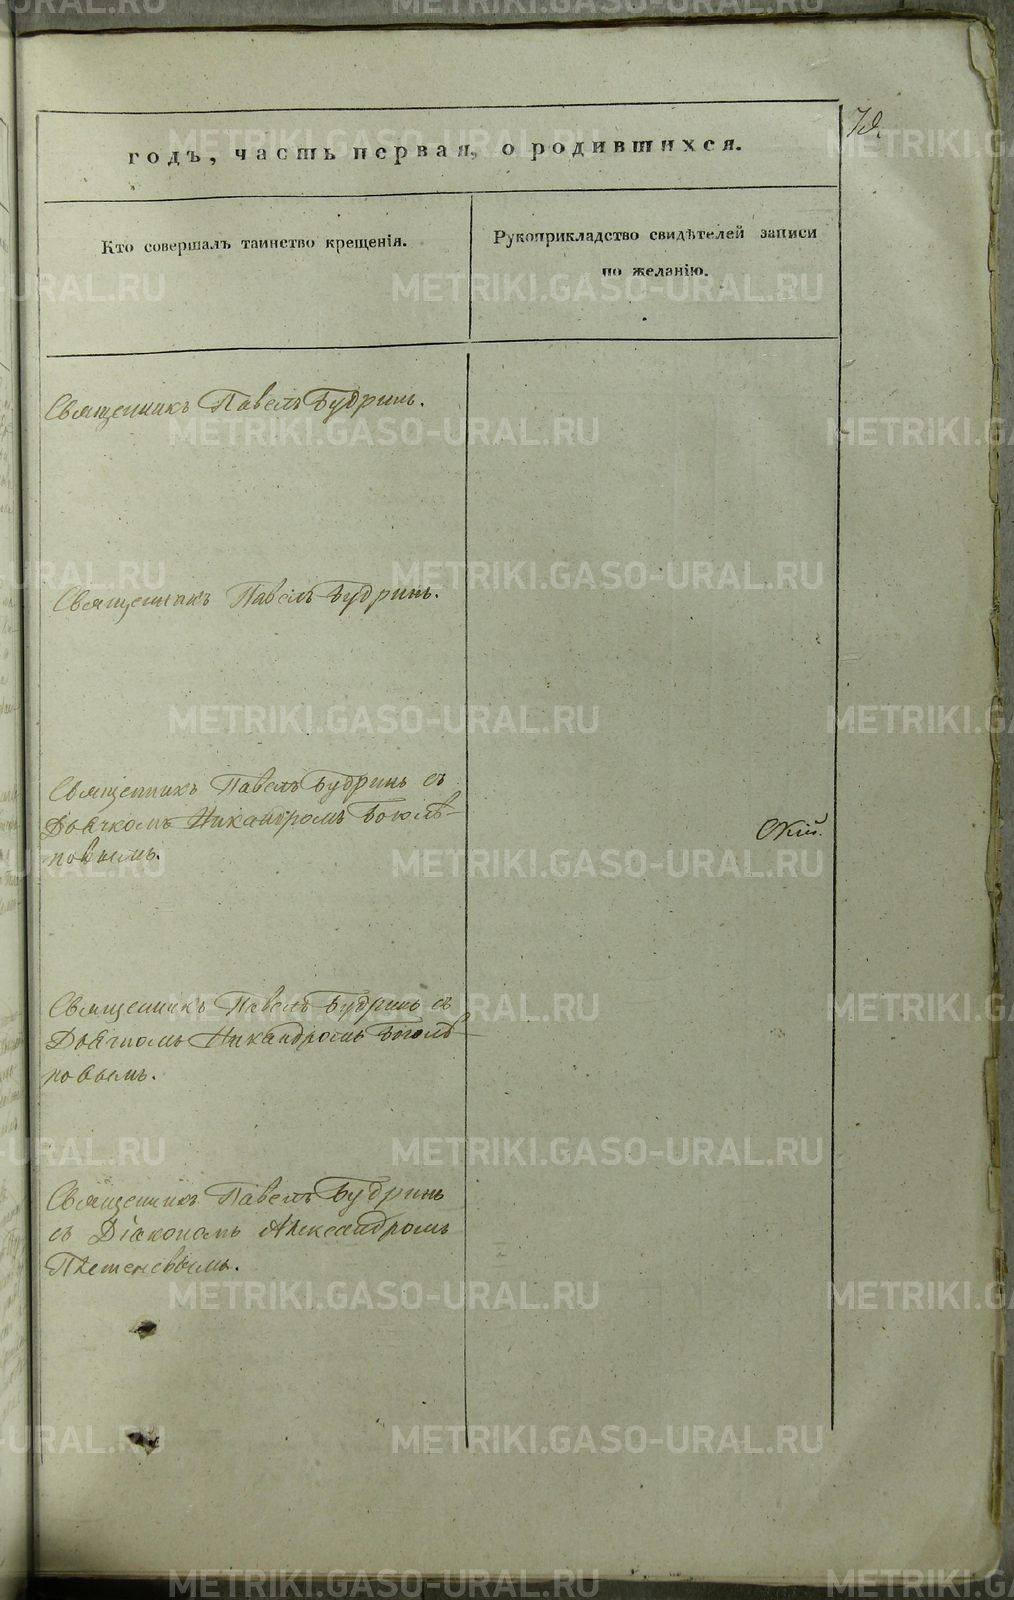 годъ, часть первая, о родившихся.
Кто совершалъ таинство крещенія.
Рукоприкладство свидѣтелей записи
по желанію.
Священникъ Павелъ Будринъ.
Священникъ Павелъ Будринъ.
Священникъ Павелъ Будринъ съ
Дьячкомъ Никандромъ
повымъ.
Священникъ Павелъ Будринъ съ
Дьячкомъ Никандромъ
повымъ.
Священникъ Павелъ Будринъ
съ Діакономъ Александромъ
METRIKI.GASO-URAL.RU